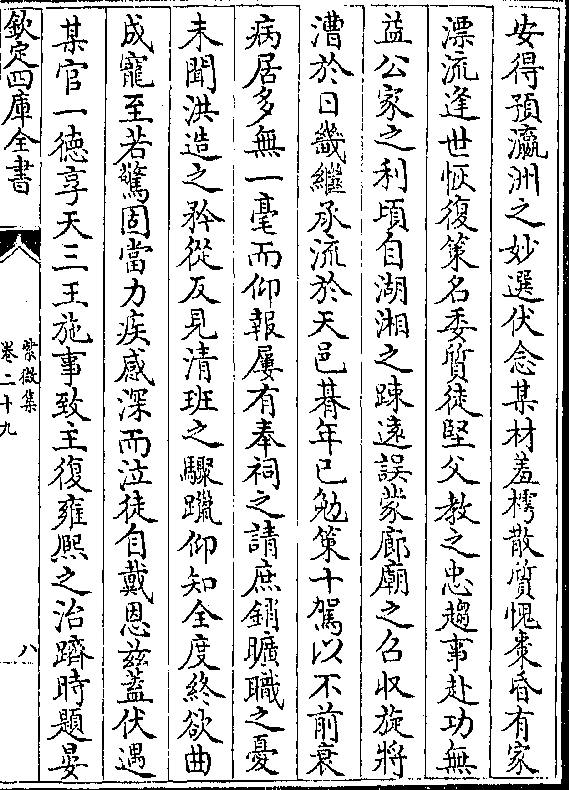 安得預瀛洲之妙選伏念某材羞樗散質愧棗昏有家
漂流逢世恢復策名委質徒堅父教之忠趨事赴功無
益公家之利頃自湖湘之踈遠誤蒙廊廟之召收旋將
漕於日畿繼承流於天邑朞年已勉策十駕以不前衰
病居多無一毫而仰報屢有奉祠之請庶銷曠職之憂
未聞洪造之矜從反見清班之驟躐仰知全度終欲曲
成寵至若驚固當力疾感深而泣徒自戴恩兹蓋伏遇
某官一德享天三王施事致主復雍熙之治躋時題晏
欽定四庫全書
紫微集
卷二十九
八